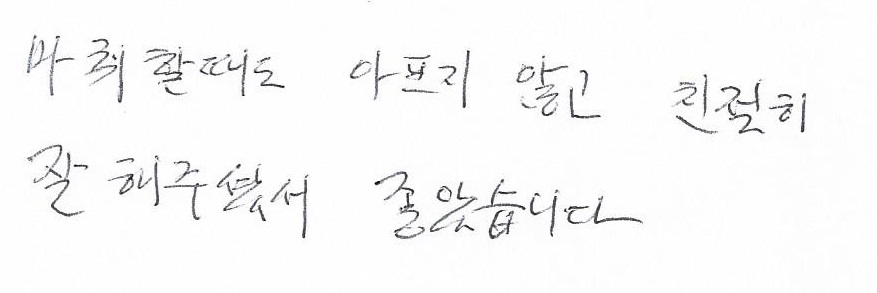 마취할때도 아프지 않고 친절히
잘 해주셨서 좋았습니다